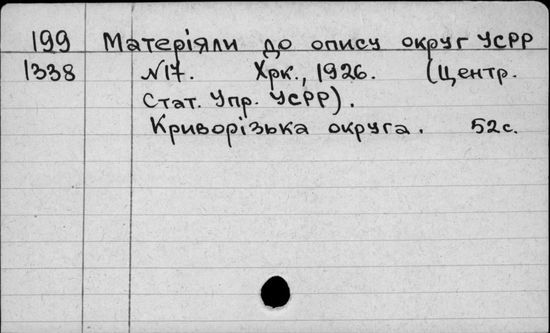 199 Матеріяли до опису округ УСРР
1338 N17. Хрк., 1926. (Центр.
Стат. Упр. УСРР).
Криворізька округа. 52с.